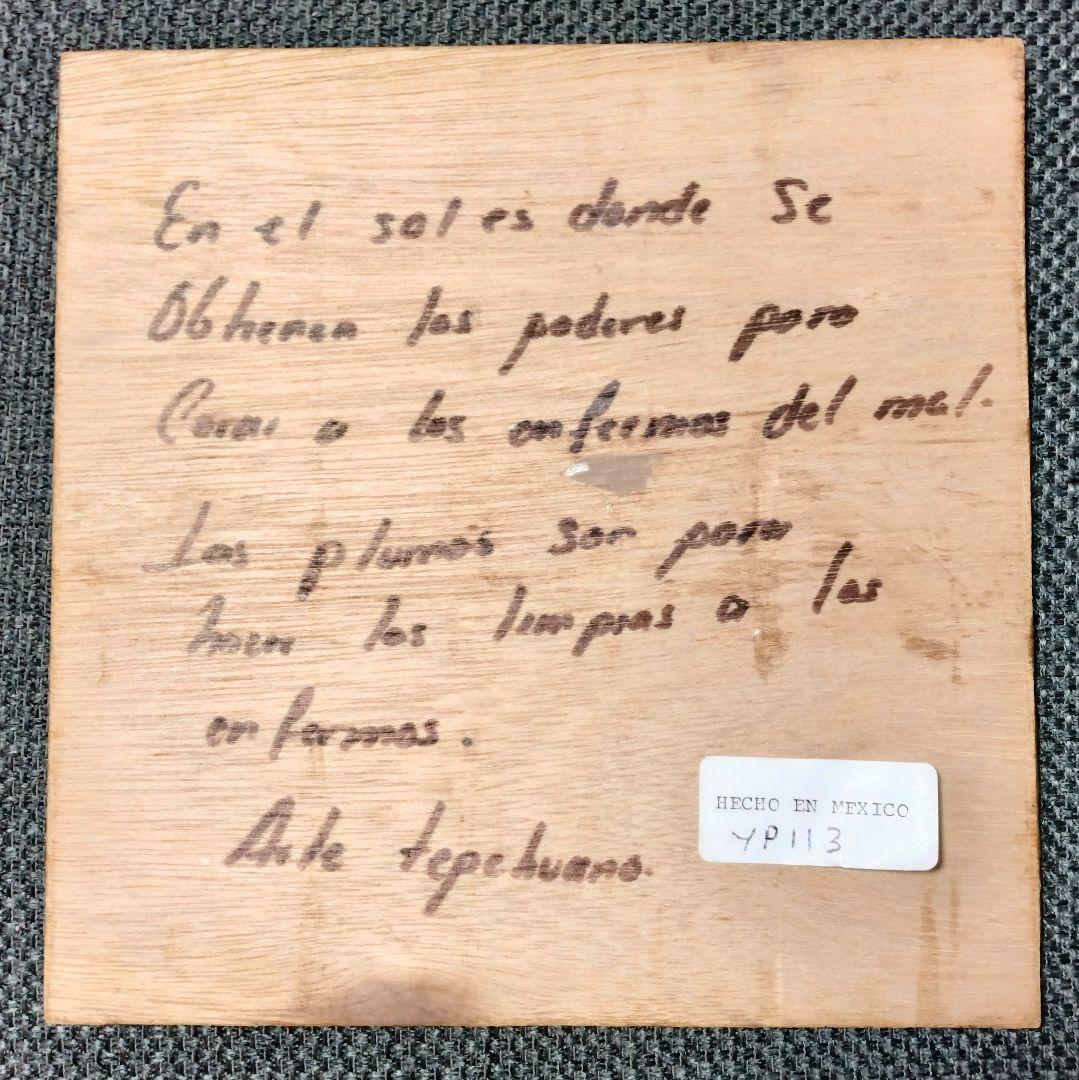 En el sol es donde Se
Obtienen los poderes para
Curar a los enfermos del mal.
Las plumas son para
hacer las limpias a los
enfermos.
Arte tepehuano.
HECHO EN MEXICO
YP113